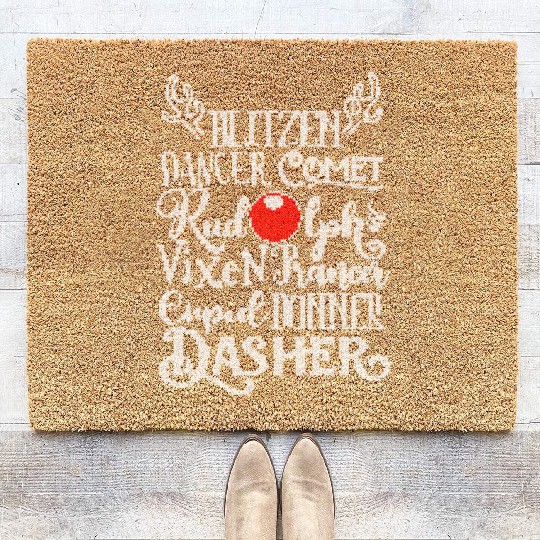 BLITZEN
DANCER COMET
Rudolph
VIXEN Prancer
Cupid DONNER
DASHER